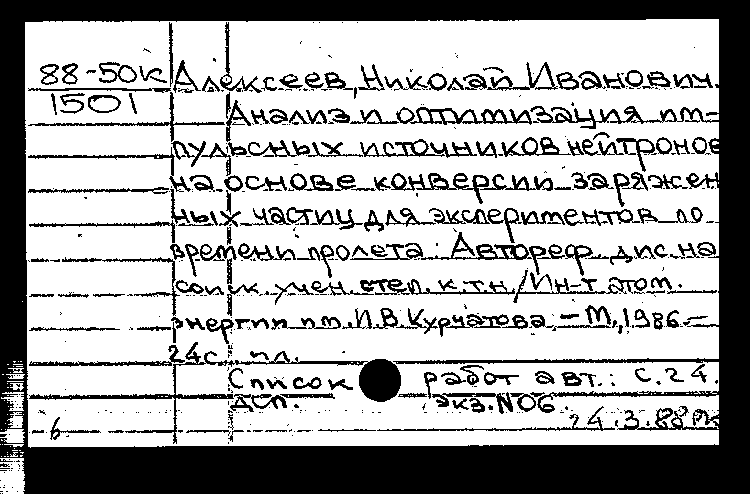 88-50к Алексеев, Николай Иванович.
1501 Анализ и оптимизация им-
пульсных источников нейтронов
на основе конверсии заряжен
ных частиц для экспериментов по
времени пролета: Автореф. дис. на
соиск. учен. степ. к.т.н./Ин-т атом.
энергии им. И.В. Курчатова. – М., 1986.–
24с. ил.
Список работ авт.: с.24.
ДСП. экз.№06.
6 24.3.88